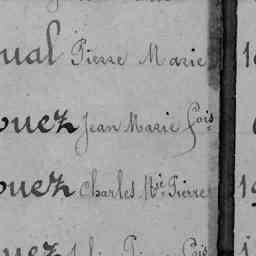 ual Pierre Marie
ouez Jean Marie Fois
ouez Charles Mie Pierre 19